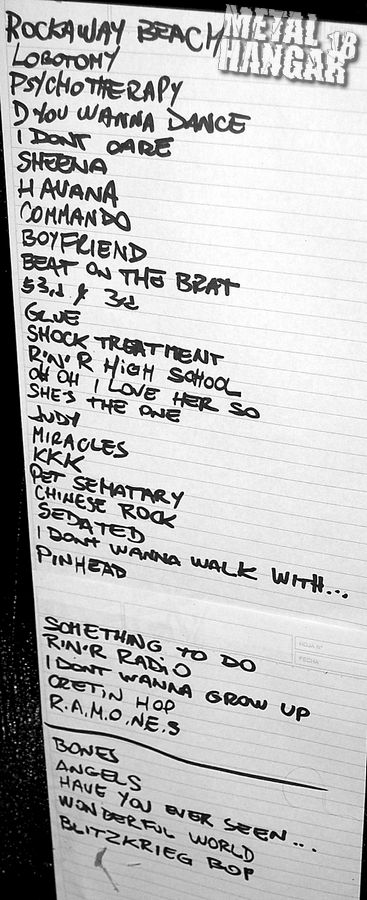 METAL
HANGAR 18
ROCKAWAY BEACH
LOBOTOMY
PSYCHOTHERAPY
D YOU WANNA DANCE
I DONT CARE
SHEENA
HAVANA
COMMANDO
BOYFRIEND
BEAT ON THE BRAT
53rd & 3rd
GLUE
SHOCK TREATMENT
R'N'R HIGH SCHOOL
OH OH I LOVE HER SO
SHE'S THE ONE
JUDY
MIRACLES
KKK
PET SEMATARY
CHINESE ROCK
SEDATED
I DONT WANNA WALK WITH...
PINHEAD
HOJA Nº
FECHA
SOMETHING TO DO
R'N'R RADIO
I DONT WANNA GROW UP
CRETIN HOP
R.A.M.O.NE.S
BONES
ANGELS
HAVE YOU EVER SEEN...
WONDERFUL WORLD
BLITZKRIEG BOP